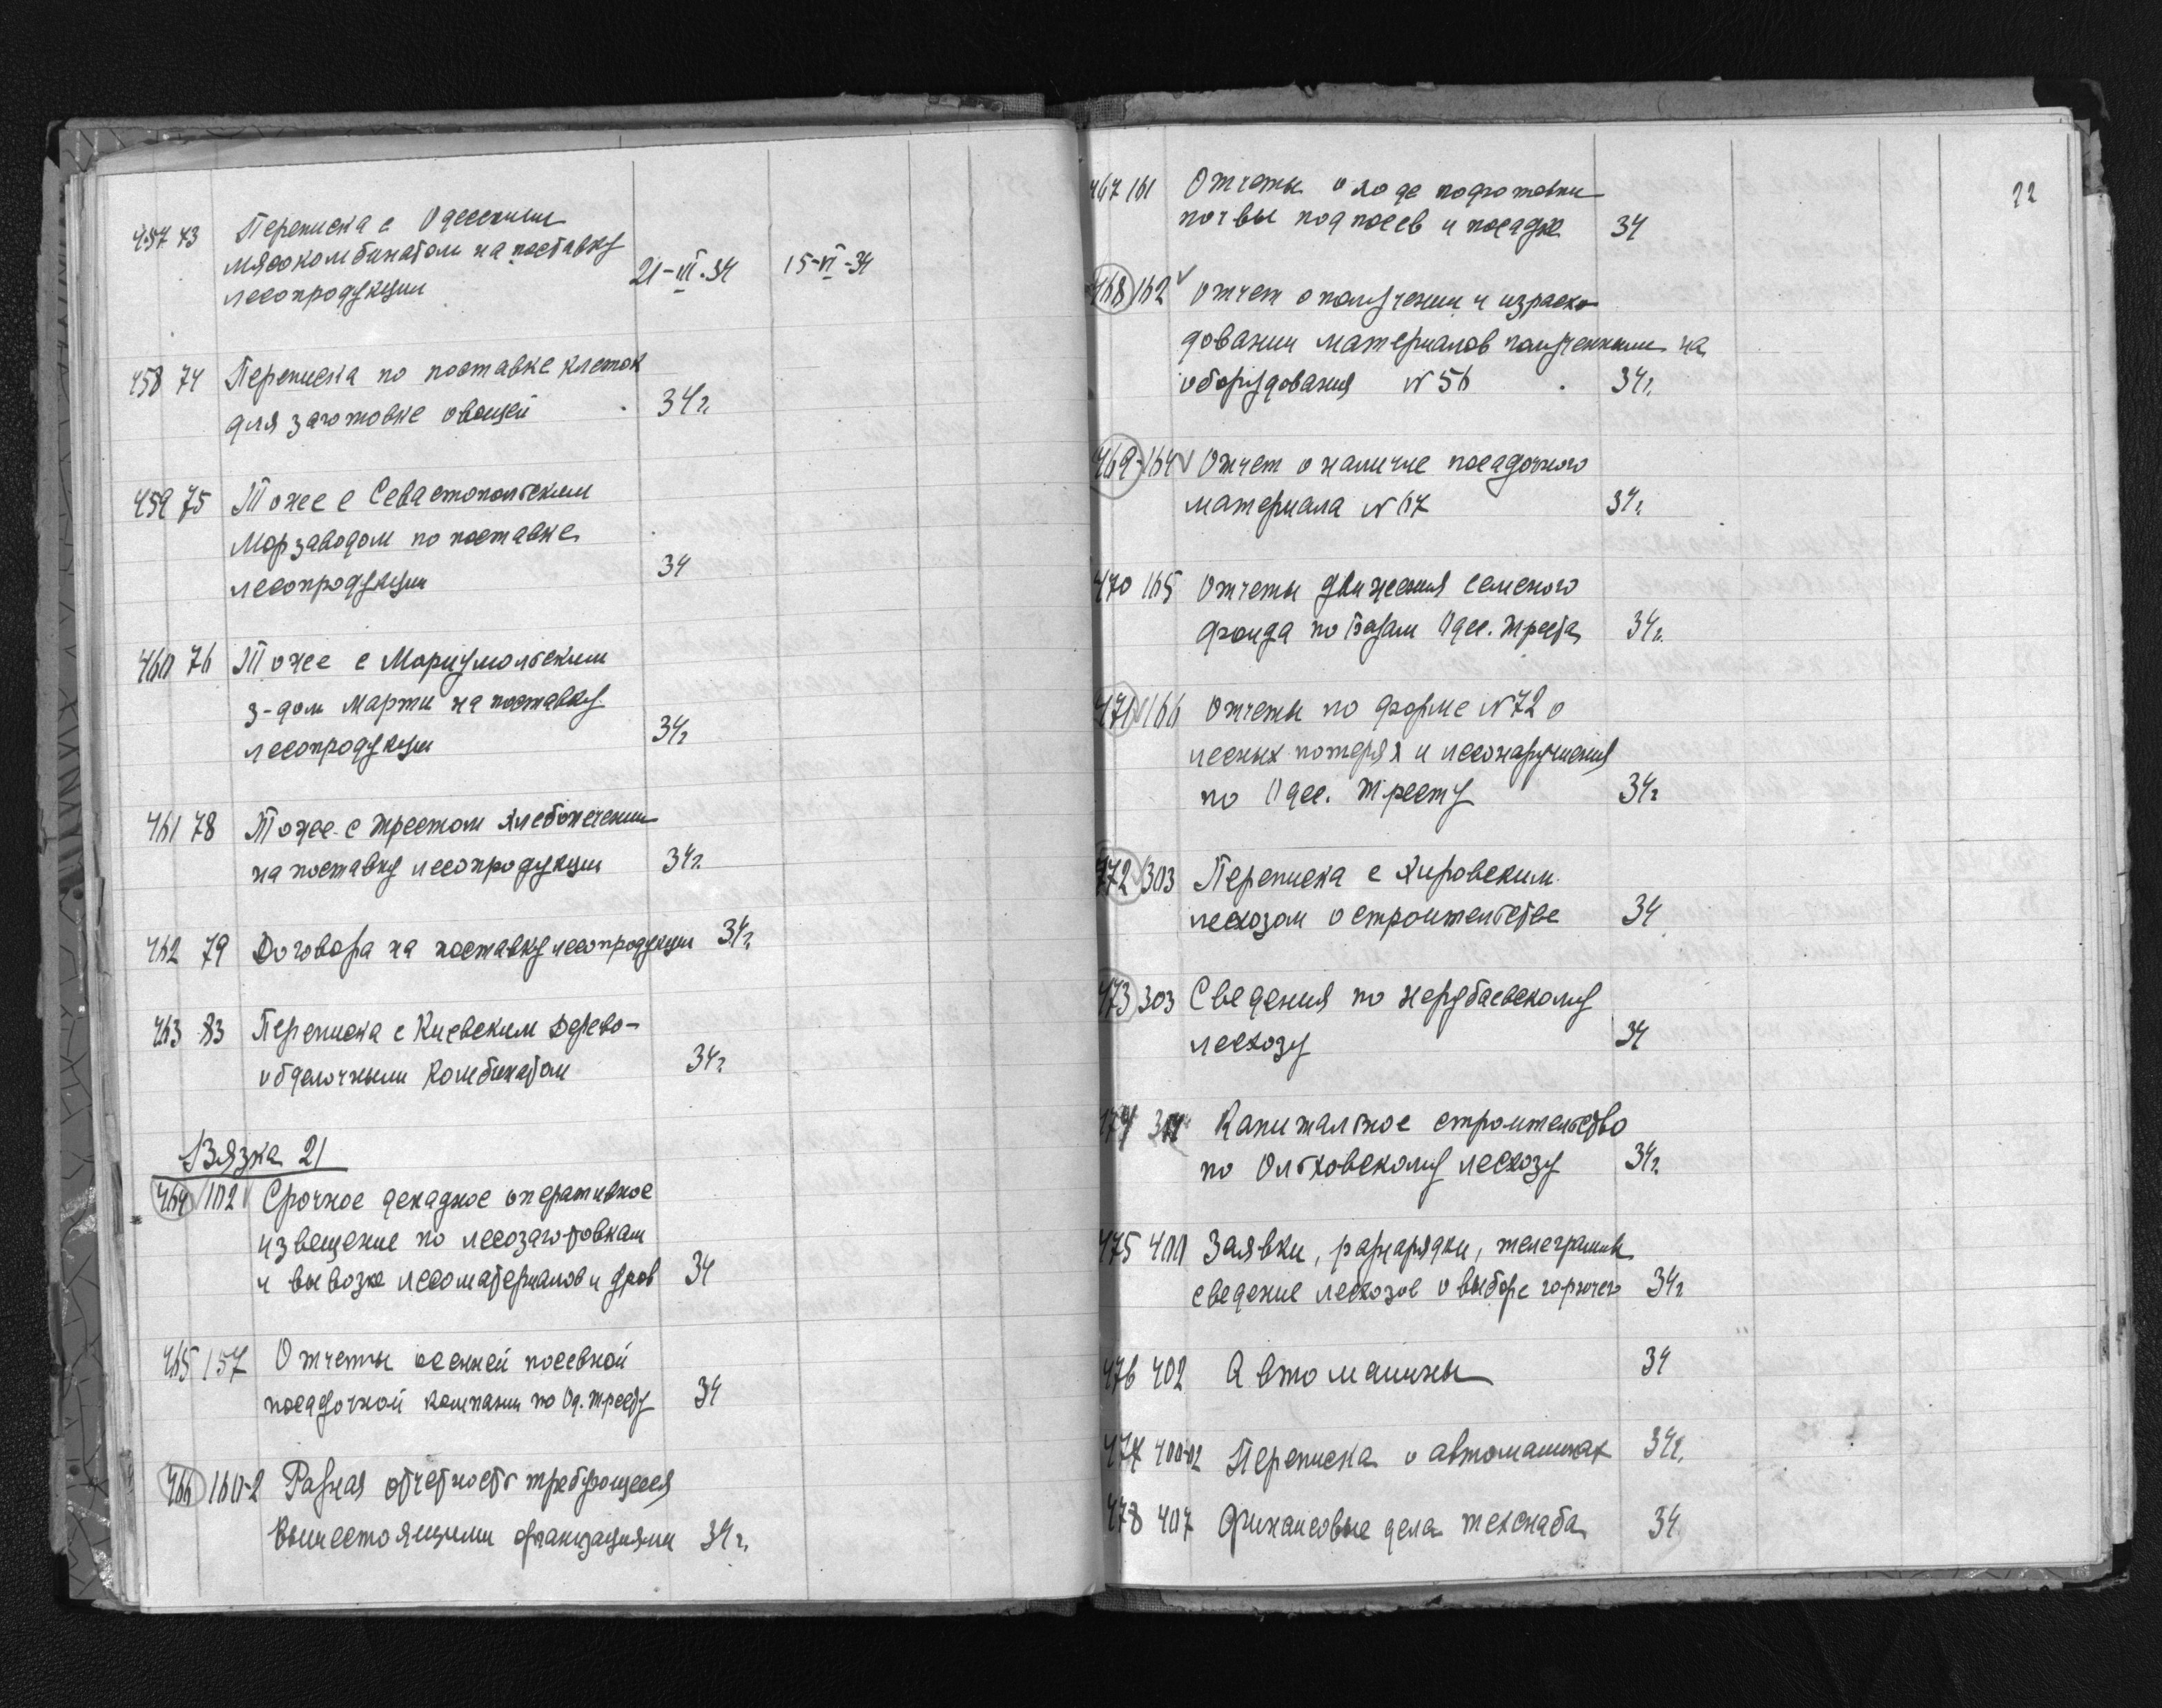 457 73 Переписка с Одесским
мясокомбинатом на поставку
лесопродукции 21-III-34 15-VI-34
458 74 Переписка по поставке клеток
для заготовке овощей 34г.
459 75 Тоже с Севастопольским
Морзаводом по поставке
лесопродукции 34
460 76 Тоже с Мариупольским
з-дом Марти на поставку
лесопродукции 34г
461 78 Тоже с трестом хлебопечении
на поставку лесопродукции 34г.
462 79 Договора на поставку лесопродукции 34г
463 83 Переписка с Киевским Дерево-
обделочным Комбинатом 34г
Вязка 21
464 102 Срочное декадное оперативное
извещение по лесозаготовкам
и вывозке лесоматериалов и дров 34
465 157 Отчеты осенней посевной
посадочной кампании по Од. тресту 34
466 160-2 Разная отчетность требующееся
вышестоящими организациями 34г.
22
467 161 Отчеты о ходе подготовки
почвы под посев и посадке 34
468 162 Отчет о получении и израсхо
довании материалов полученными на
оборудования N 56 34г.
469 164 Отчет о наличие посадочного
материала N 67 34г.
470 165 Отчеты движения семеного
фонда по базам Одес. треста 34г.
471 166 Отчеты по форме N 72 о
лесных потерях и лесонарушения
по Одес. тресту 34г
472 303 Переписка с Кировским
лесхозом о строительстве 34
473 303 Сведения по Нерубаевскому
лесхозу 34
474 Капитальное строительство
по Ольховскому лесхозу 34г.
475 400 Заявки, разнарядки, телеграммы
сведение лесхозов о выборе горючего 34г
476 402 Автомашины 34
477 400-02 Переписка о автомашинах 34г.
478 407 Финансовые дела техснаба 34